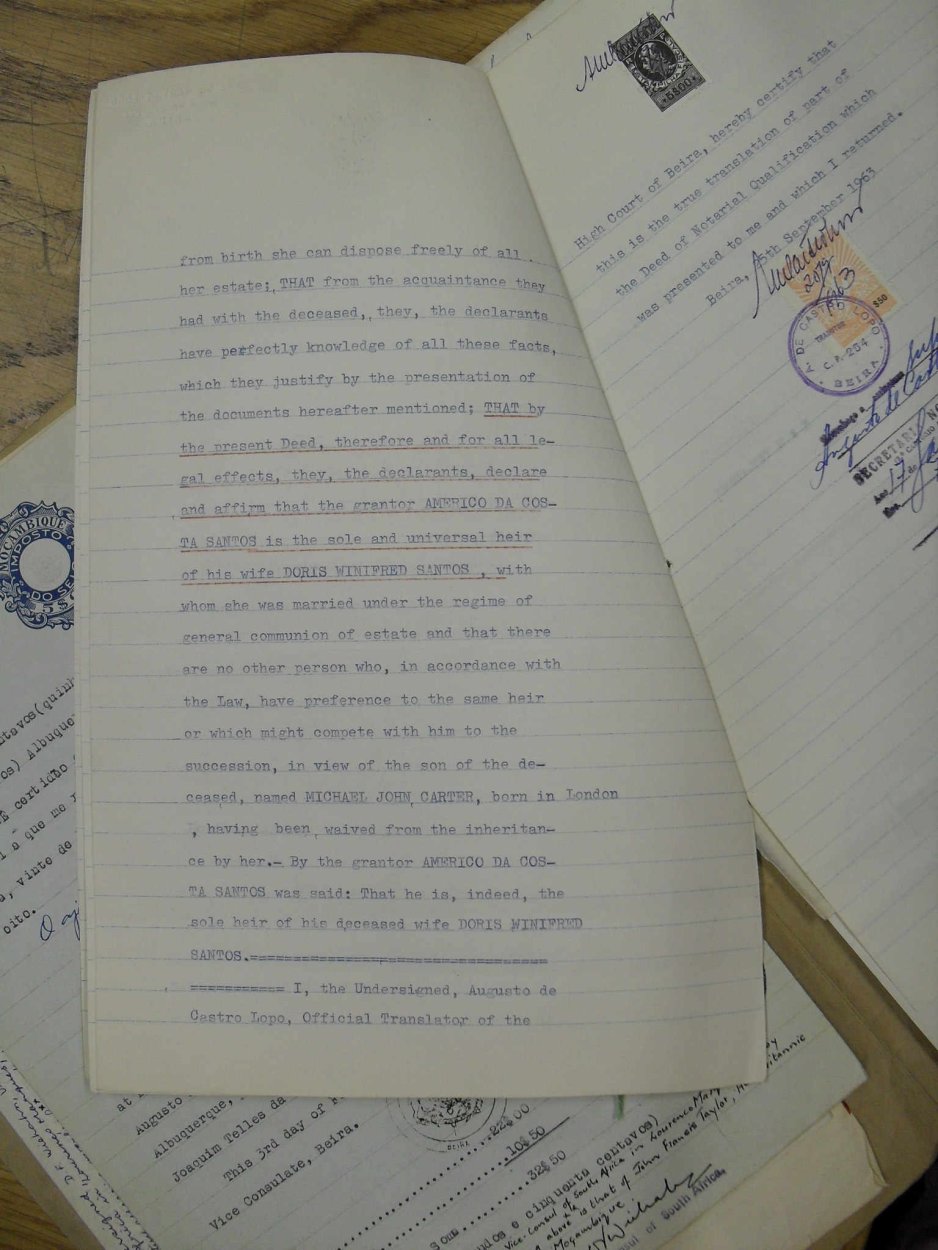 from birth she can dispose freely of all
her estate; THAT from the acquaintance they
had with the deceased, they, the declarants
have perfectly knowledge of all these facts,
which they justify by the presentation of
the documents hereafter mentioned; THAT by
the present Deed, therefore and for all le-
gal effects, they, the declarants, declare
and affirm that the grantor AMERICO DA COS-
TA SANTOS is the sole and universal heir
of his wife DORIS WINIFRED SANTOS , with
whom she was married under the regime of
general communion of estate and that there
are no other person who, in accordance with
the Law, have preference to the same heir
or which might compete with him to the
succession, in view of the son of the de-
ceased, named MICHAEL JOHN CARTER, born in London
, having been waived from the inheritan-
ce by her.- By the grantor AMERICO DA COS-
TA SANTOS was said: That he is, indeed, the
sole heir of his deceased wife DORIS WINIFRED
SANTOS.==================================
=========== I, the Undersigned, Augusto de
Castro Lopo, Official Translator of the
5$00
High Court of Beira, hereby certify that
this is the true translation of part of
the Deed of Notarial Qualification which
was presented to me and which I returned.
Beira, 5th September 1963
$50
A. DE CASTRO LOPO
TRANSLATOR
C.P. 254
BEIRA
SECRETARIA NO
17
MOÇAMBIQUE
IMPOSTO
DO SELO
5$
Albuque
certidão
que me
vinte de
oito.
at
Augusto
Albuquerque,
Joaquim Telles da
This 3rd day of
Vice Consulate, Beira.
BEIRA
22$00
10$50
32$50
e cinquenta centavos)
Vice-Consul of South Africa in Lourenco Marques
above is that of John Francis Taylor, H Britannic
Mozambique
of South Africa